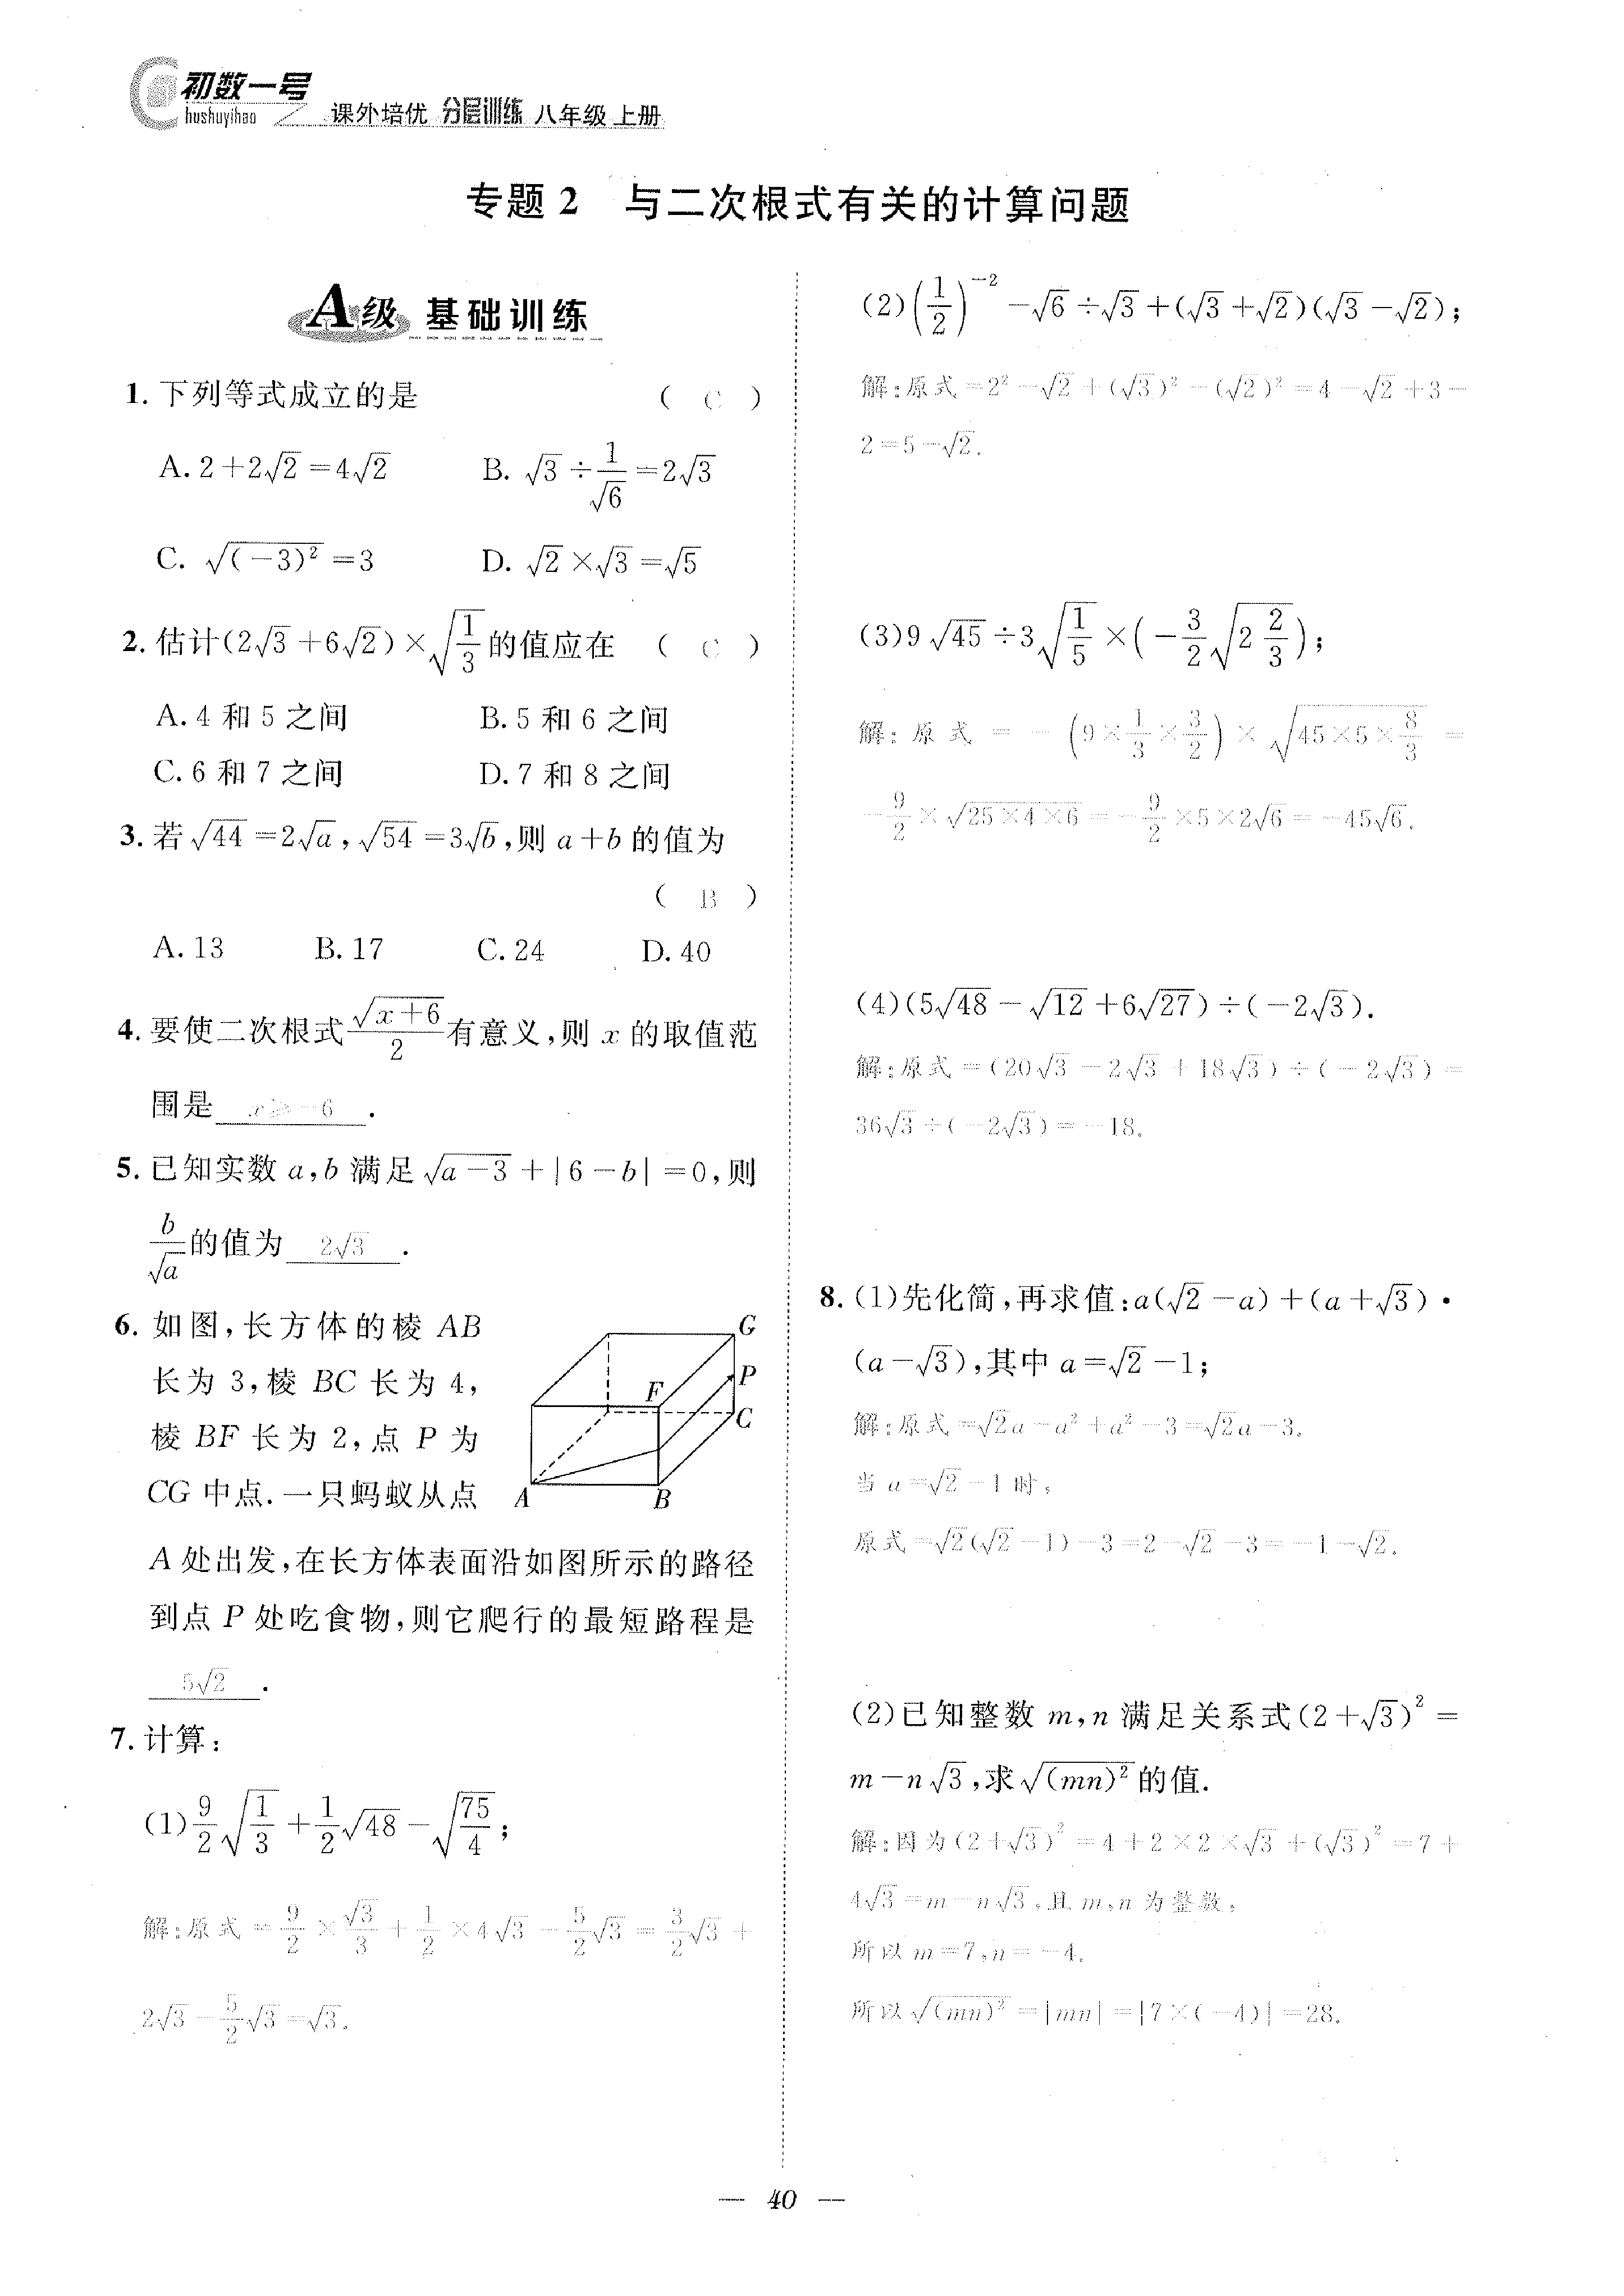 初数一号
hushuyihao
课外培优 分层训练 八年级 上册
专题 2 与二次根式有关的计算问题
A级 基础训练
1. 下列等式成立的是 ( C )
A. 2+2√2=4√2 B. √3÷1/√6=2√3
C. √((-3)²)=3 D. √2×√3=√5
2. 估计(2√3+6√2)×√(1/3)的值应在 ( C )
A. 4 和 5 之间 B. 5 和 6 之间
C. 6 和 7 之间 D. 7 和 8 之间
3. 若√44=2√a,√54=3√b,则 a+b 的值为
( B )
A. 13 B. 17 C. 24 D. 40
4. 要使二次根式√(x+6)/2有意义,则 x 的取值范
围是 x≥-6 .
5. 已知实数 a,b 满足√(a-3)+|6-b|=0,则
b/√a的值为 2√3 .
6. 如图,长方体的棱 AB
长为 3,棱 BC 长为 4,
棱 BF 长为 2,点 P 为
CG 中点. 一只蚂蚁从点
G
P
F
C
A
B
A 处出发,在长方体表面沿如图所示的路径
到点 P 处吃食物,则它爬行的最短路程是
5√2 .
7. 计算:
(1) 9/2√(1/3)+1/2√48-√(75/4);
解:原式=9/2×√3/3+1/2×4√3-5/2√3=3/2√3+
2√3-5/2√3=√3.
(2)(1/2)⁻²-√6÷√3+(√3+√2)(√3-√2);
解:原式=2²-√2+(√3)²-(√2)²=4-√2+3-
2=5-√2.
(3)9√45÷3√(1/5)×(-3/2√(2 2/3));
解:原式=-(9×1/3×3/2)×√(45×5×8/3)=
-9/2×√(25×4×6)=-9/2×5×2√6=-45√6.
(4)(5√48-√12+6√27)÷(-2√3).
解:原式=(20√3-2√3+18√3)÷(-2√3)=
36√3÷(-2√3)=-18.
8. (1)先化简,再求值:a(√2-a)+(a+√3)·
(a-√3),其中 a=√2-1;
解:原式=√2a-a²+a²-3=√2a-3.
当 a=√2-1 时,
原式=√2(√2-1)-3=2-√2-3=-1-√2.
(2)已知整数 m,n 满足关系式(2+√3)²=
m-n√3,求√((mn)²)的值.
解:因为(2+√3)²=4+2×2×√3+(√3)²=7+
4√3=m-n√3,且 m,n 为整数,
所以 m=7,n=-4.
所以√((mn)²)=|mn|=|7×(-4)|=28.
— 40 —